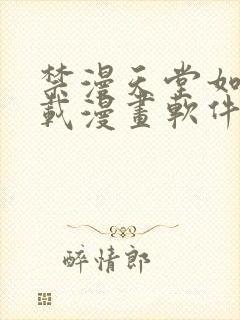 禁漫天堂如
載漫畫軟件
醉情郎